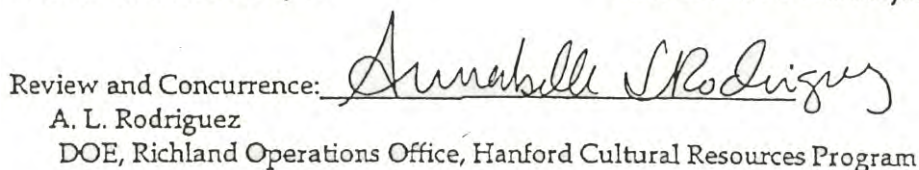 Review and Concurrence: Annabelle L Rodriguez
A. L. Rodriguez
DOE, Richland Operations Office, Hanford Cultural Resources Program